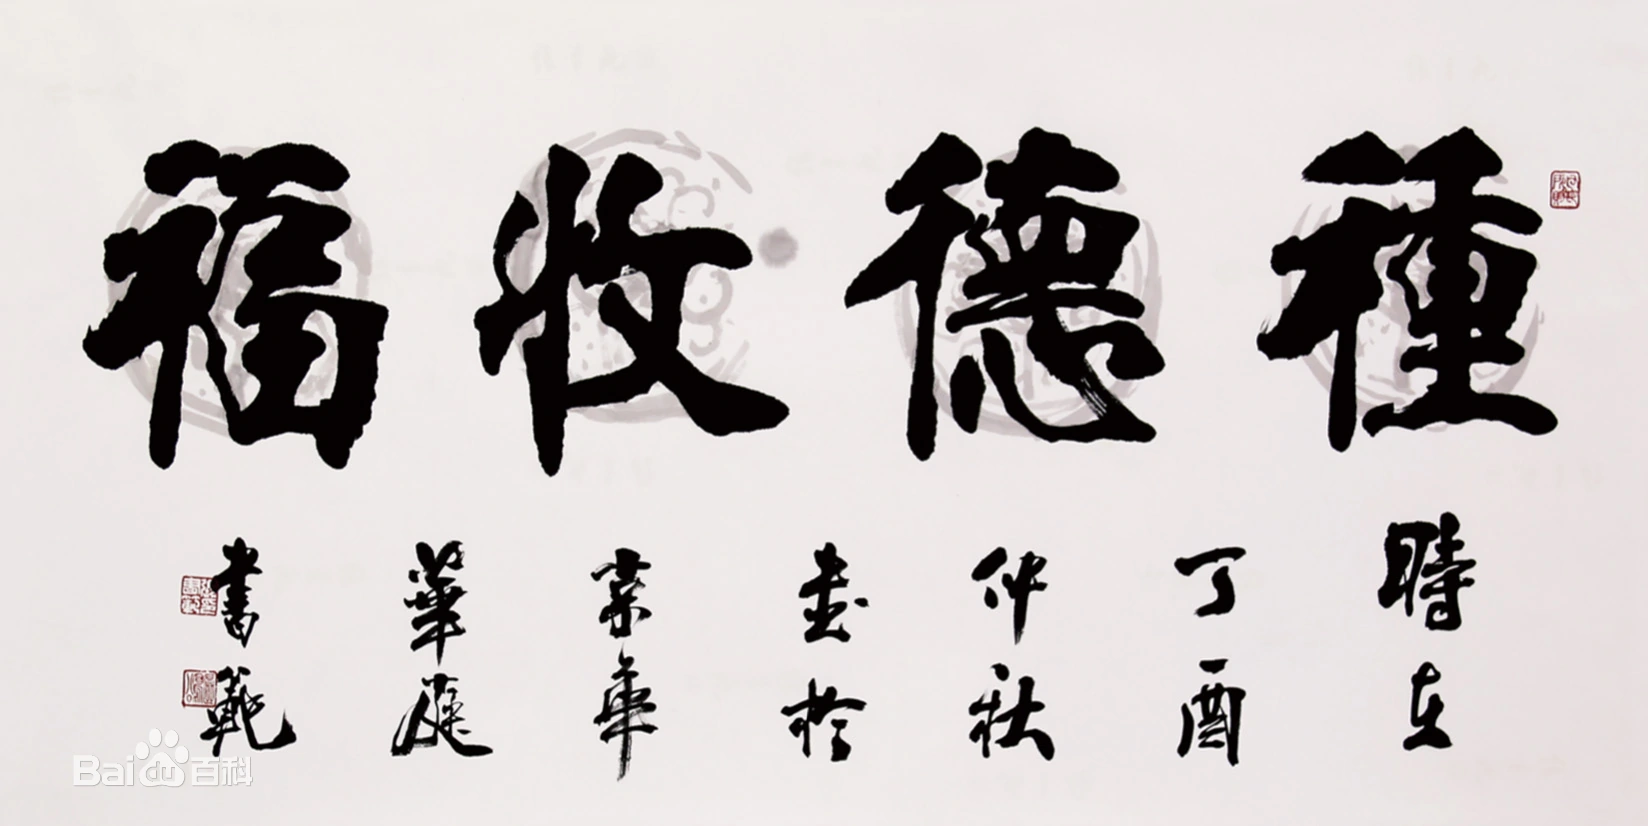 種德收福
時在
丁酉
仲秋
書於
京華
華庭
書範
Bai百科